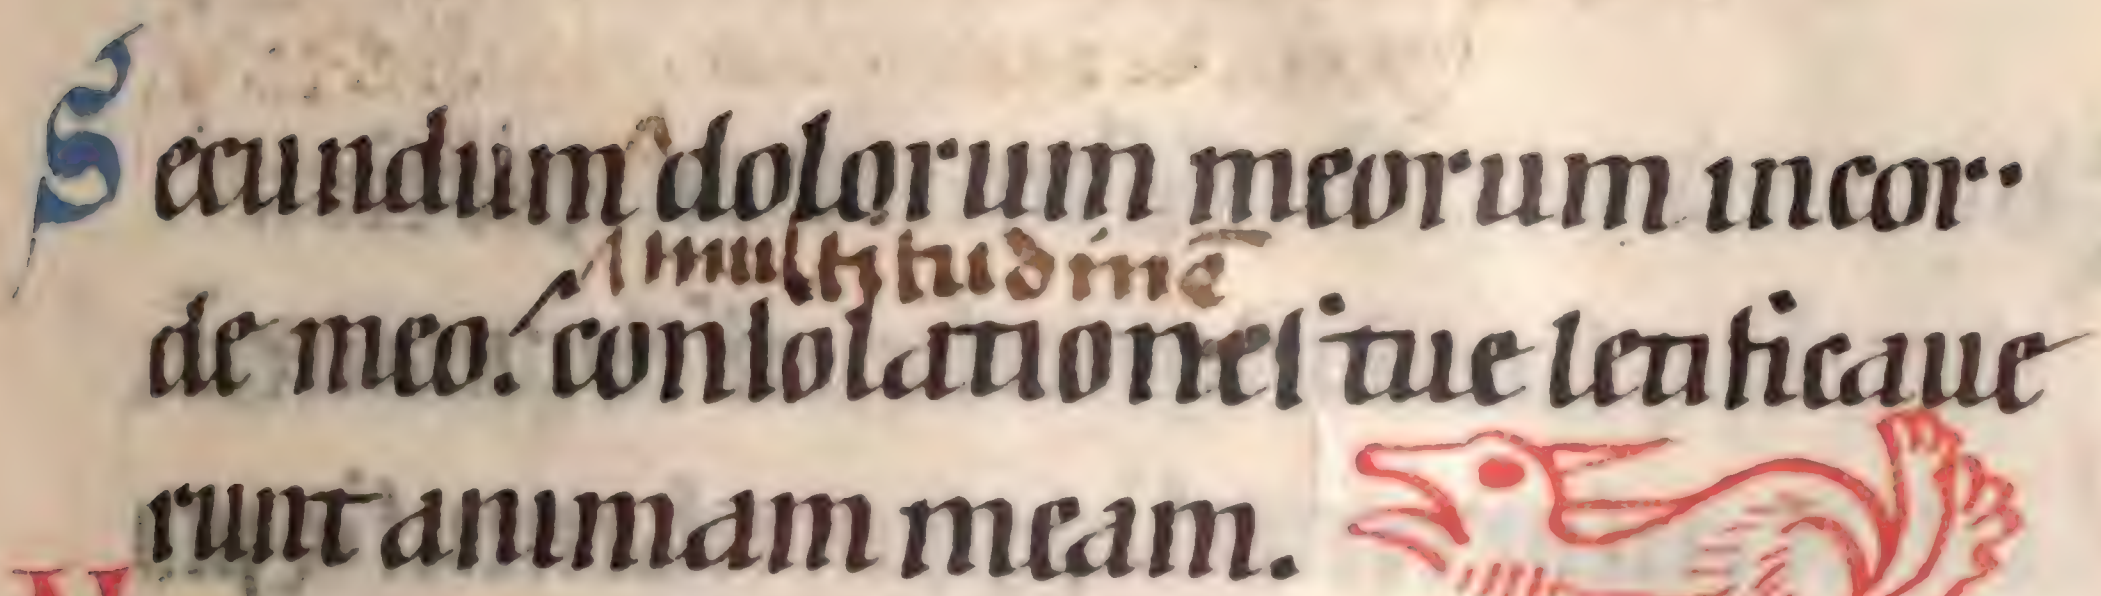 Secundum dolorum meorum incor·
multitudinē
de meo. conſolationeſ tue letificaue
runt animam meam.